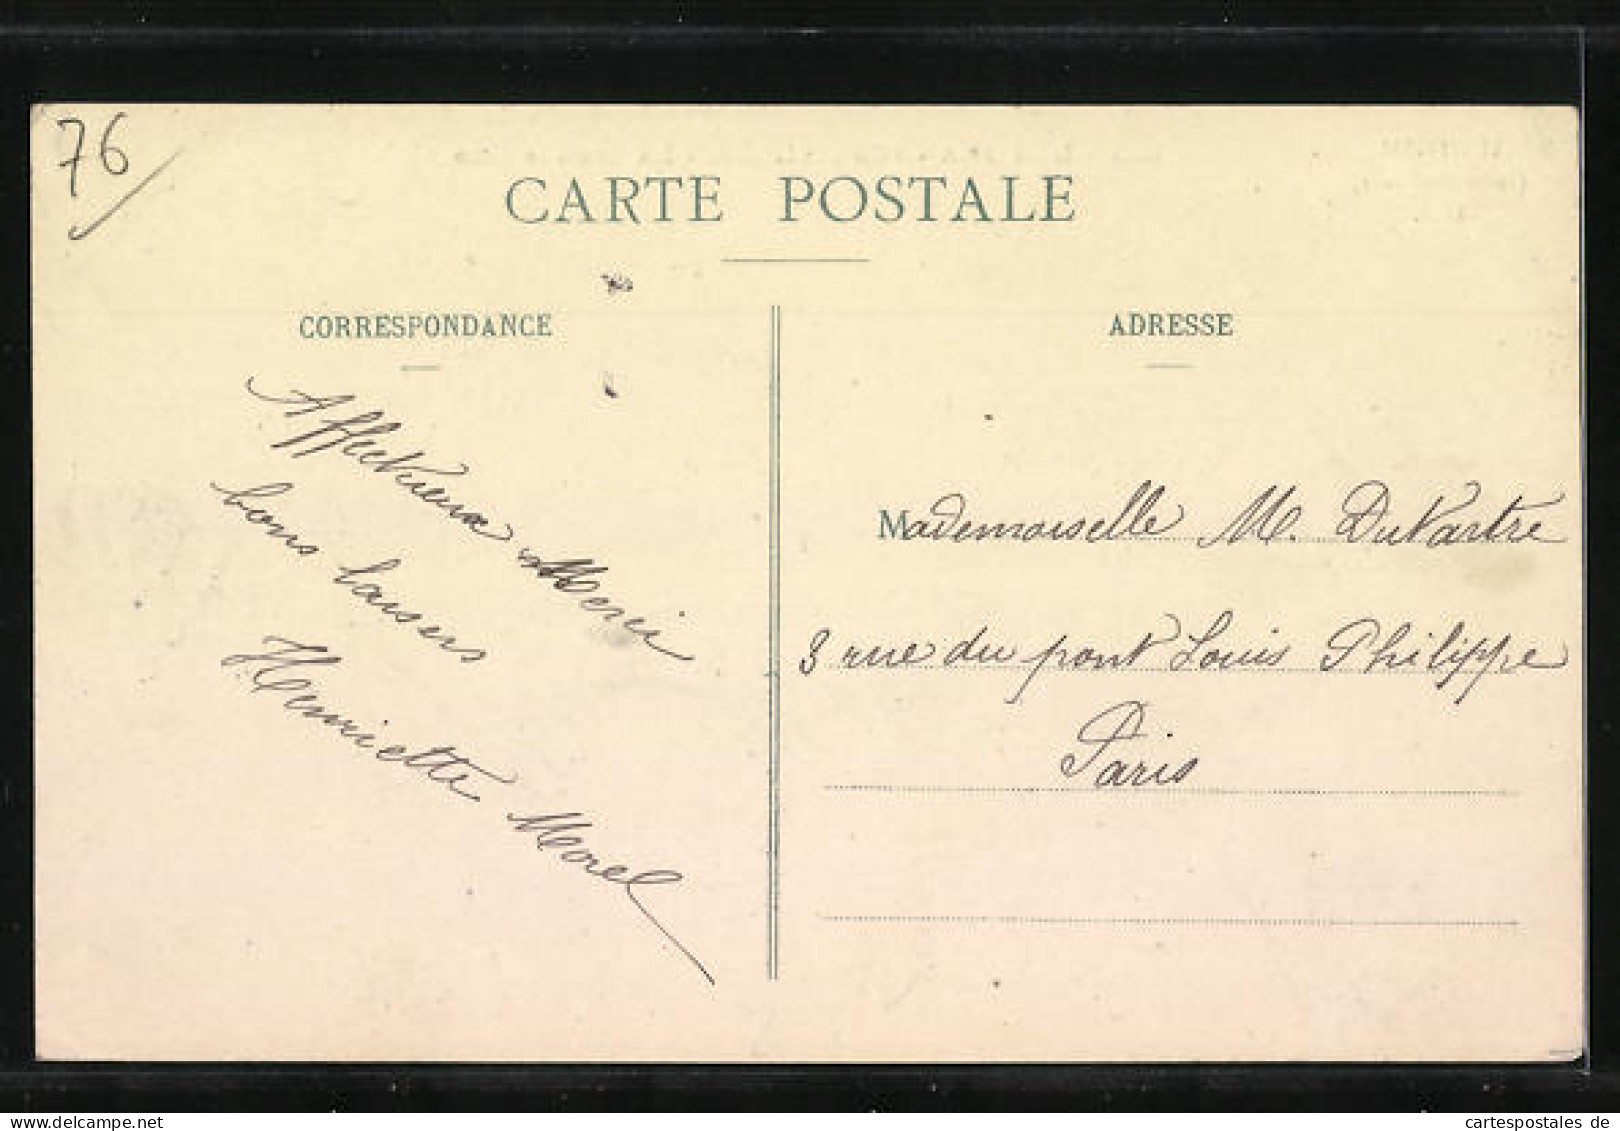 76
CARTE POSTALE
CORRESPONDANCE
Affectueux Merci
bons baisers
Henriette Morel
ADRESSE
Mademoiselle M. Dutartre
3 rue du pont Louis Philippe
Paris
cartespostales de